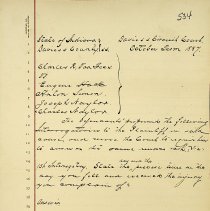 534
State of Indiana
Daviess County, ss
Daviess Circuit Court
October Term 1897.
Charles R.
vs
Eugene Hack
Anton Simon
Joseph Naylor
Charles Naylor
The defendants propounds the following
Interrogatories to the Plaintiff in said
cause, and moves the Court to require him
to answer the same under oath, Viz:
1st Interrogatory State the precise time in the
day you fell and received the injury
you complain of.
Answer